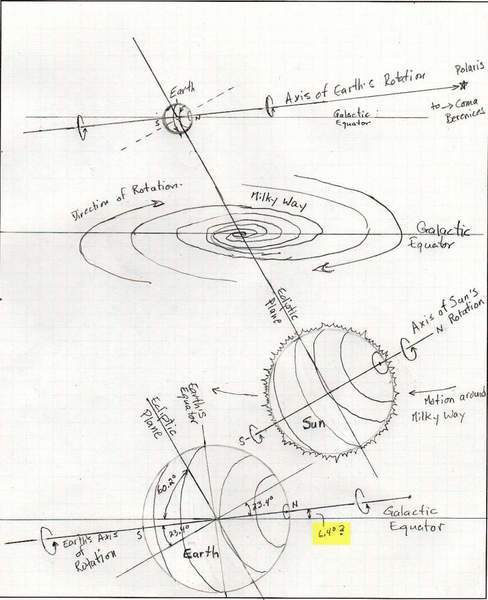 Earth
Axis of Earth's Rotation
Polaris
S
N
Galactic
Equator
to → Coma
Berenices
Direction of Rotation.
Milky Way
Galactic
Equator
Ecliptic
Plane
Axis of Sun's
N Rotation.
Sun
S
Motion around
Milky Way
Ecliptic
Plane
Earth's
Equator
60.2°
23.4°
23.4°
S
N
Earth
Earth's Axis
of
Rotation
6.4°?
Galactic
Equator